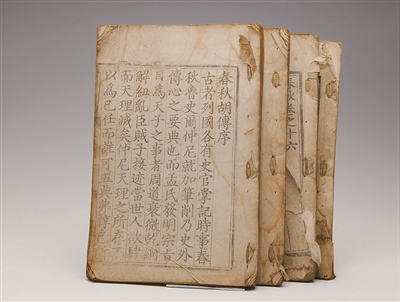 春秋胡傳序
古者列國各有史官掌記時事春
秋魯史爾仲尼就加筆削乃史外
傳心之要典也而孟氏發明宗旨
目為天子之事者周道衰微乾綱
解紐亂臣賊子接迹當世人欲肆
而天理滅矣仲尼天理之所在不
以為已任而誰可五典弗惇已
春秋卷之十六